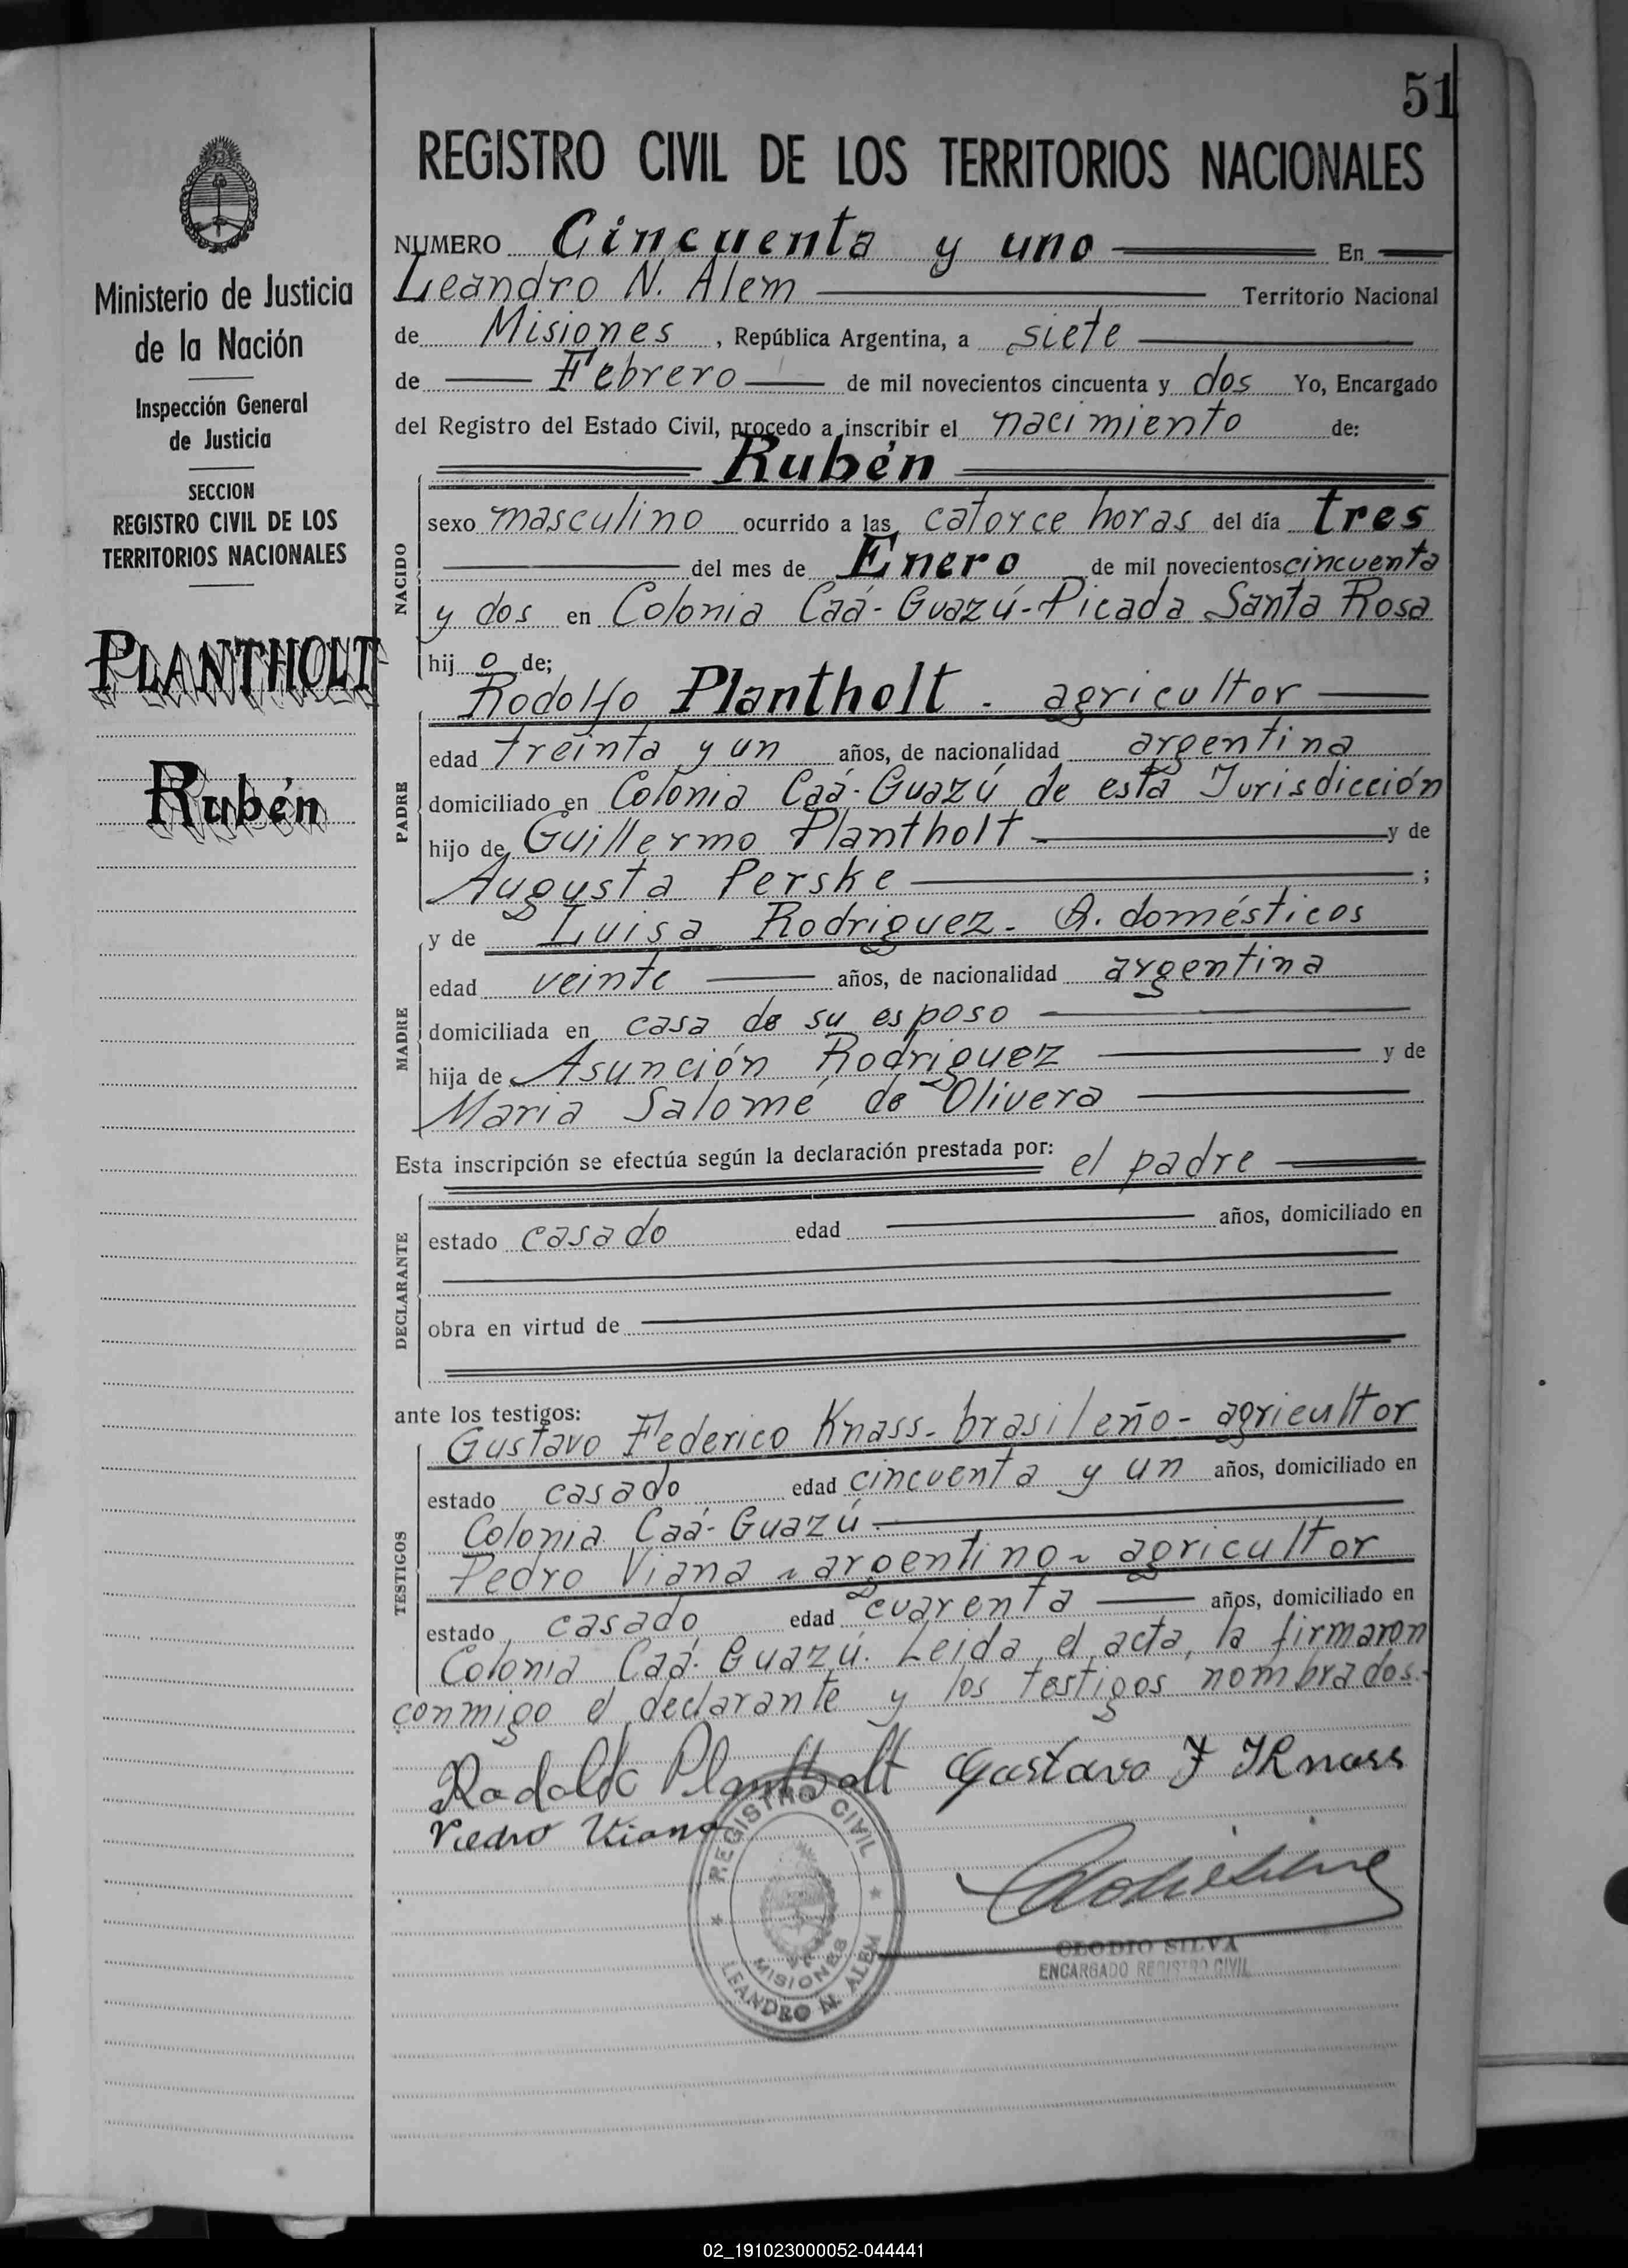 51
Ministerio de Justicia
de la Nación
Inspección General
de Justicia
SECCION
REGISTRO CIVIL DE LOS
TERRITORIOS NACIONALES
PLANTHOLT
Rubén
REGISTRO CIVIL DE LOS TERRITORIOS NACIONALES
NUMERO Cincuenta y uno En
Leandro N. Alem Territorio Nacional
de Misiones, República Argentina, a siete
de Febrero de mil novecientos cincuenta y dos Yo, Encargado
del Registro del Estado Civil, procedo a inscribir el nacimiento de:
Rubén
NACIDO
sexo masculino ocurrido a las catorce horas del día tres
del mes de Enero de mil novecientos cincuenta
y dos en Colonia Caá-Guazú-Picada Santa Rosa
hijo de;
Rodolfo Plantholt - agricultor
PADRE
edad treinta y un años, de nacionalidad argentina
domiciliado en Colonia Caá-Guazú de esta Jurisdicción
hijo de Guillermo Plantholt y de
Augusta Perske ;
y de Luisa Rodriguez - Q. domésticos
MADRE
edad veinte años, de nacionalidad argentina
domiciliada en casa de su esposo
hija de Asunción Rodriguez y de
Maria Salomé de Olivera
Esta inscripción se efectúa según la declaración prestada por: el padre
DECLARANTE
estado casado edad años, domiciliado en
obra en virtud de
ante los testigos:
TESTIGOS
Gustavo Federico Knass- brasileño- agricultor
estado casado edad cincuenta y un años, domiciliado en
Colonia Caá-Guazú
Pedro Viana - argentino - agricultor
estado casado edad cuarenta años, domiciliado en
Colonia Caá-Guazú. Leida el acta, la firmaron
conmigo el declarante y los testigos nombrados.-
Rodolfo Plantholt Gustavo F Knass
Pedro Viana
REGISTRO CIVIL
MISIONES
LEANDRO N. ALEM
CLODIO SILVA
ENCARGADO REGISTRO CIVIL
02_191023000052-044441